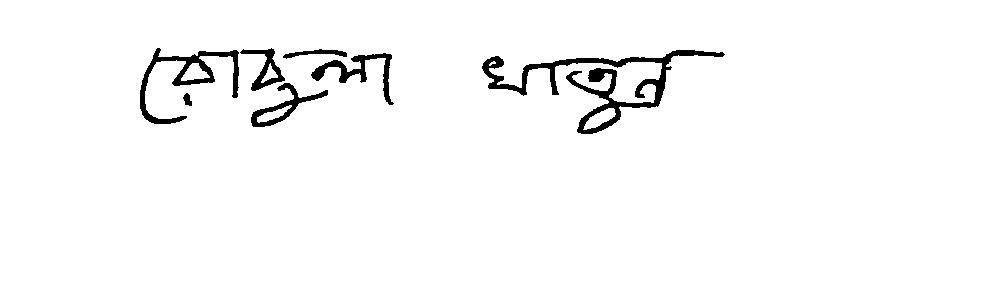 রোবুলা খাতুন